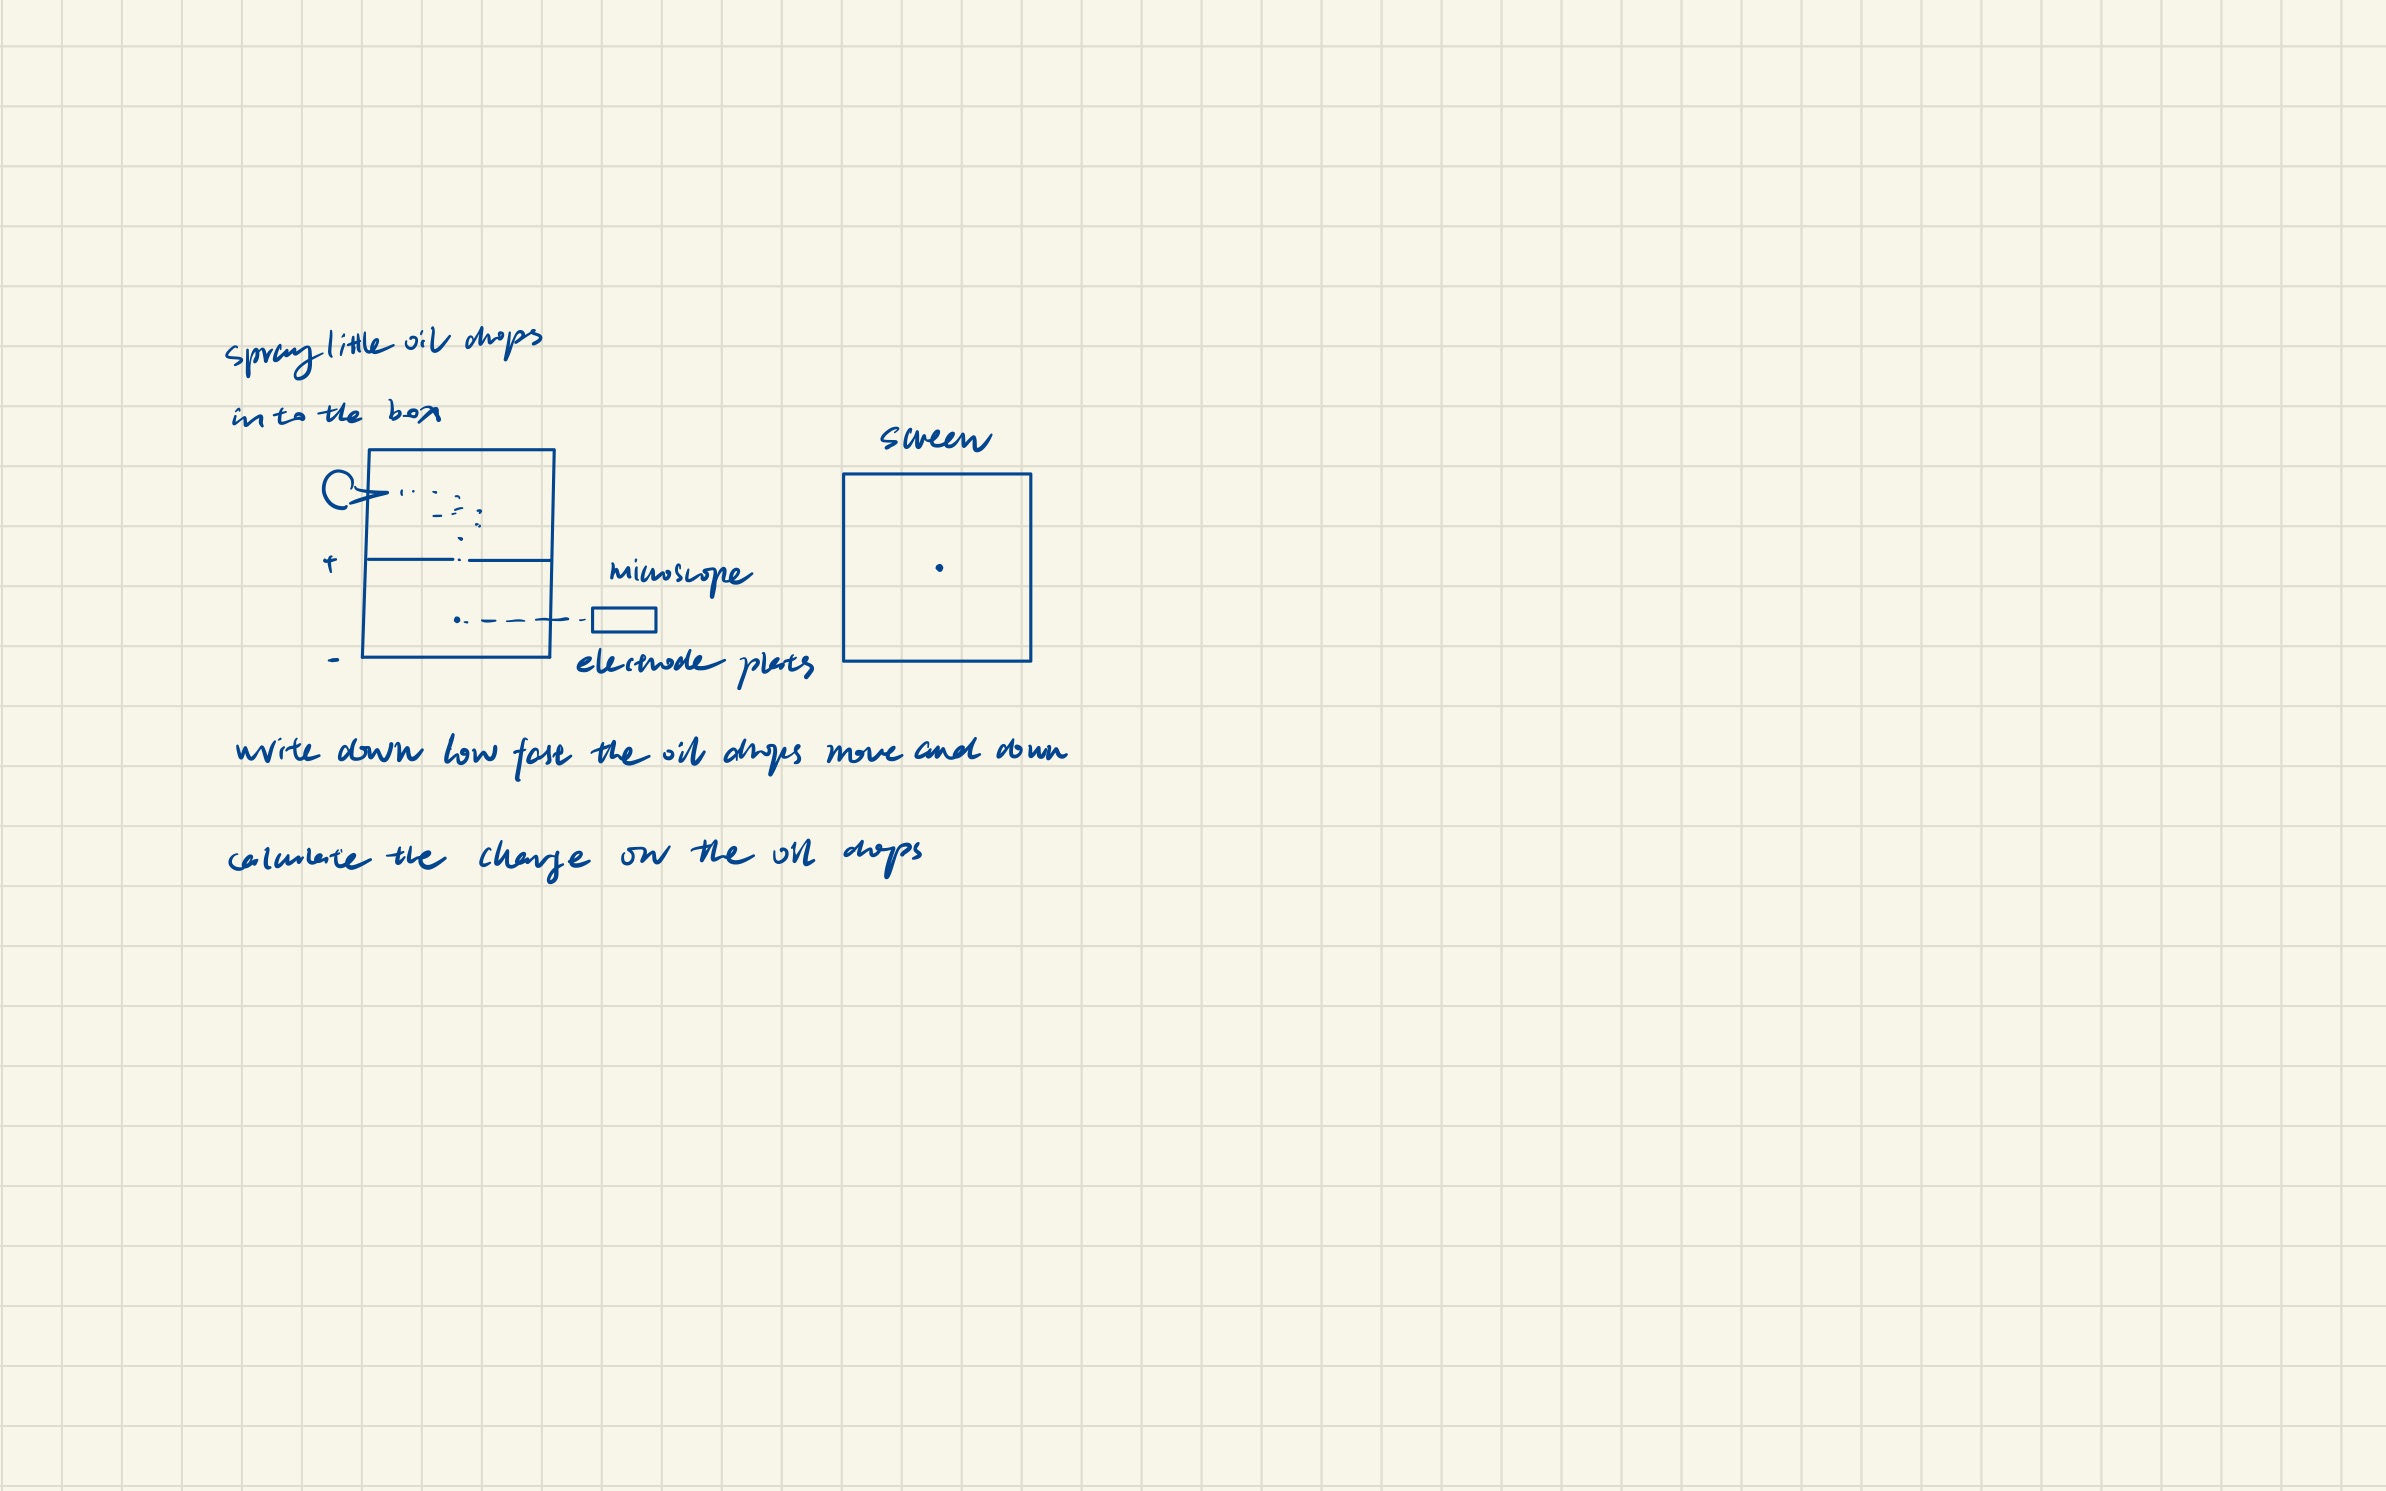 spray little oil drops
into the box
screen
+
microscope
-
electrode plates
write down how fast the oil drops move and down
calculate the charge on the oil drops